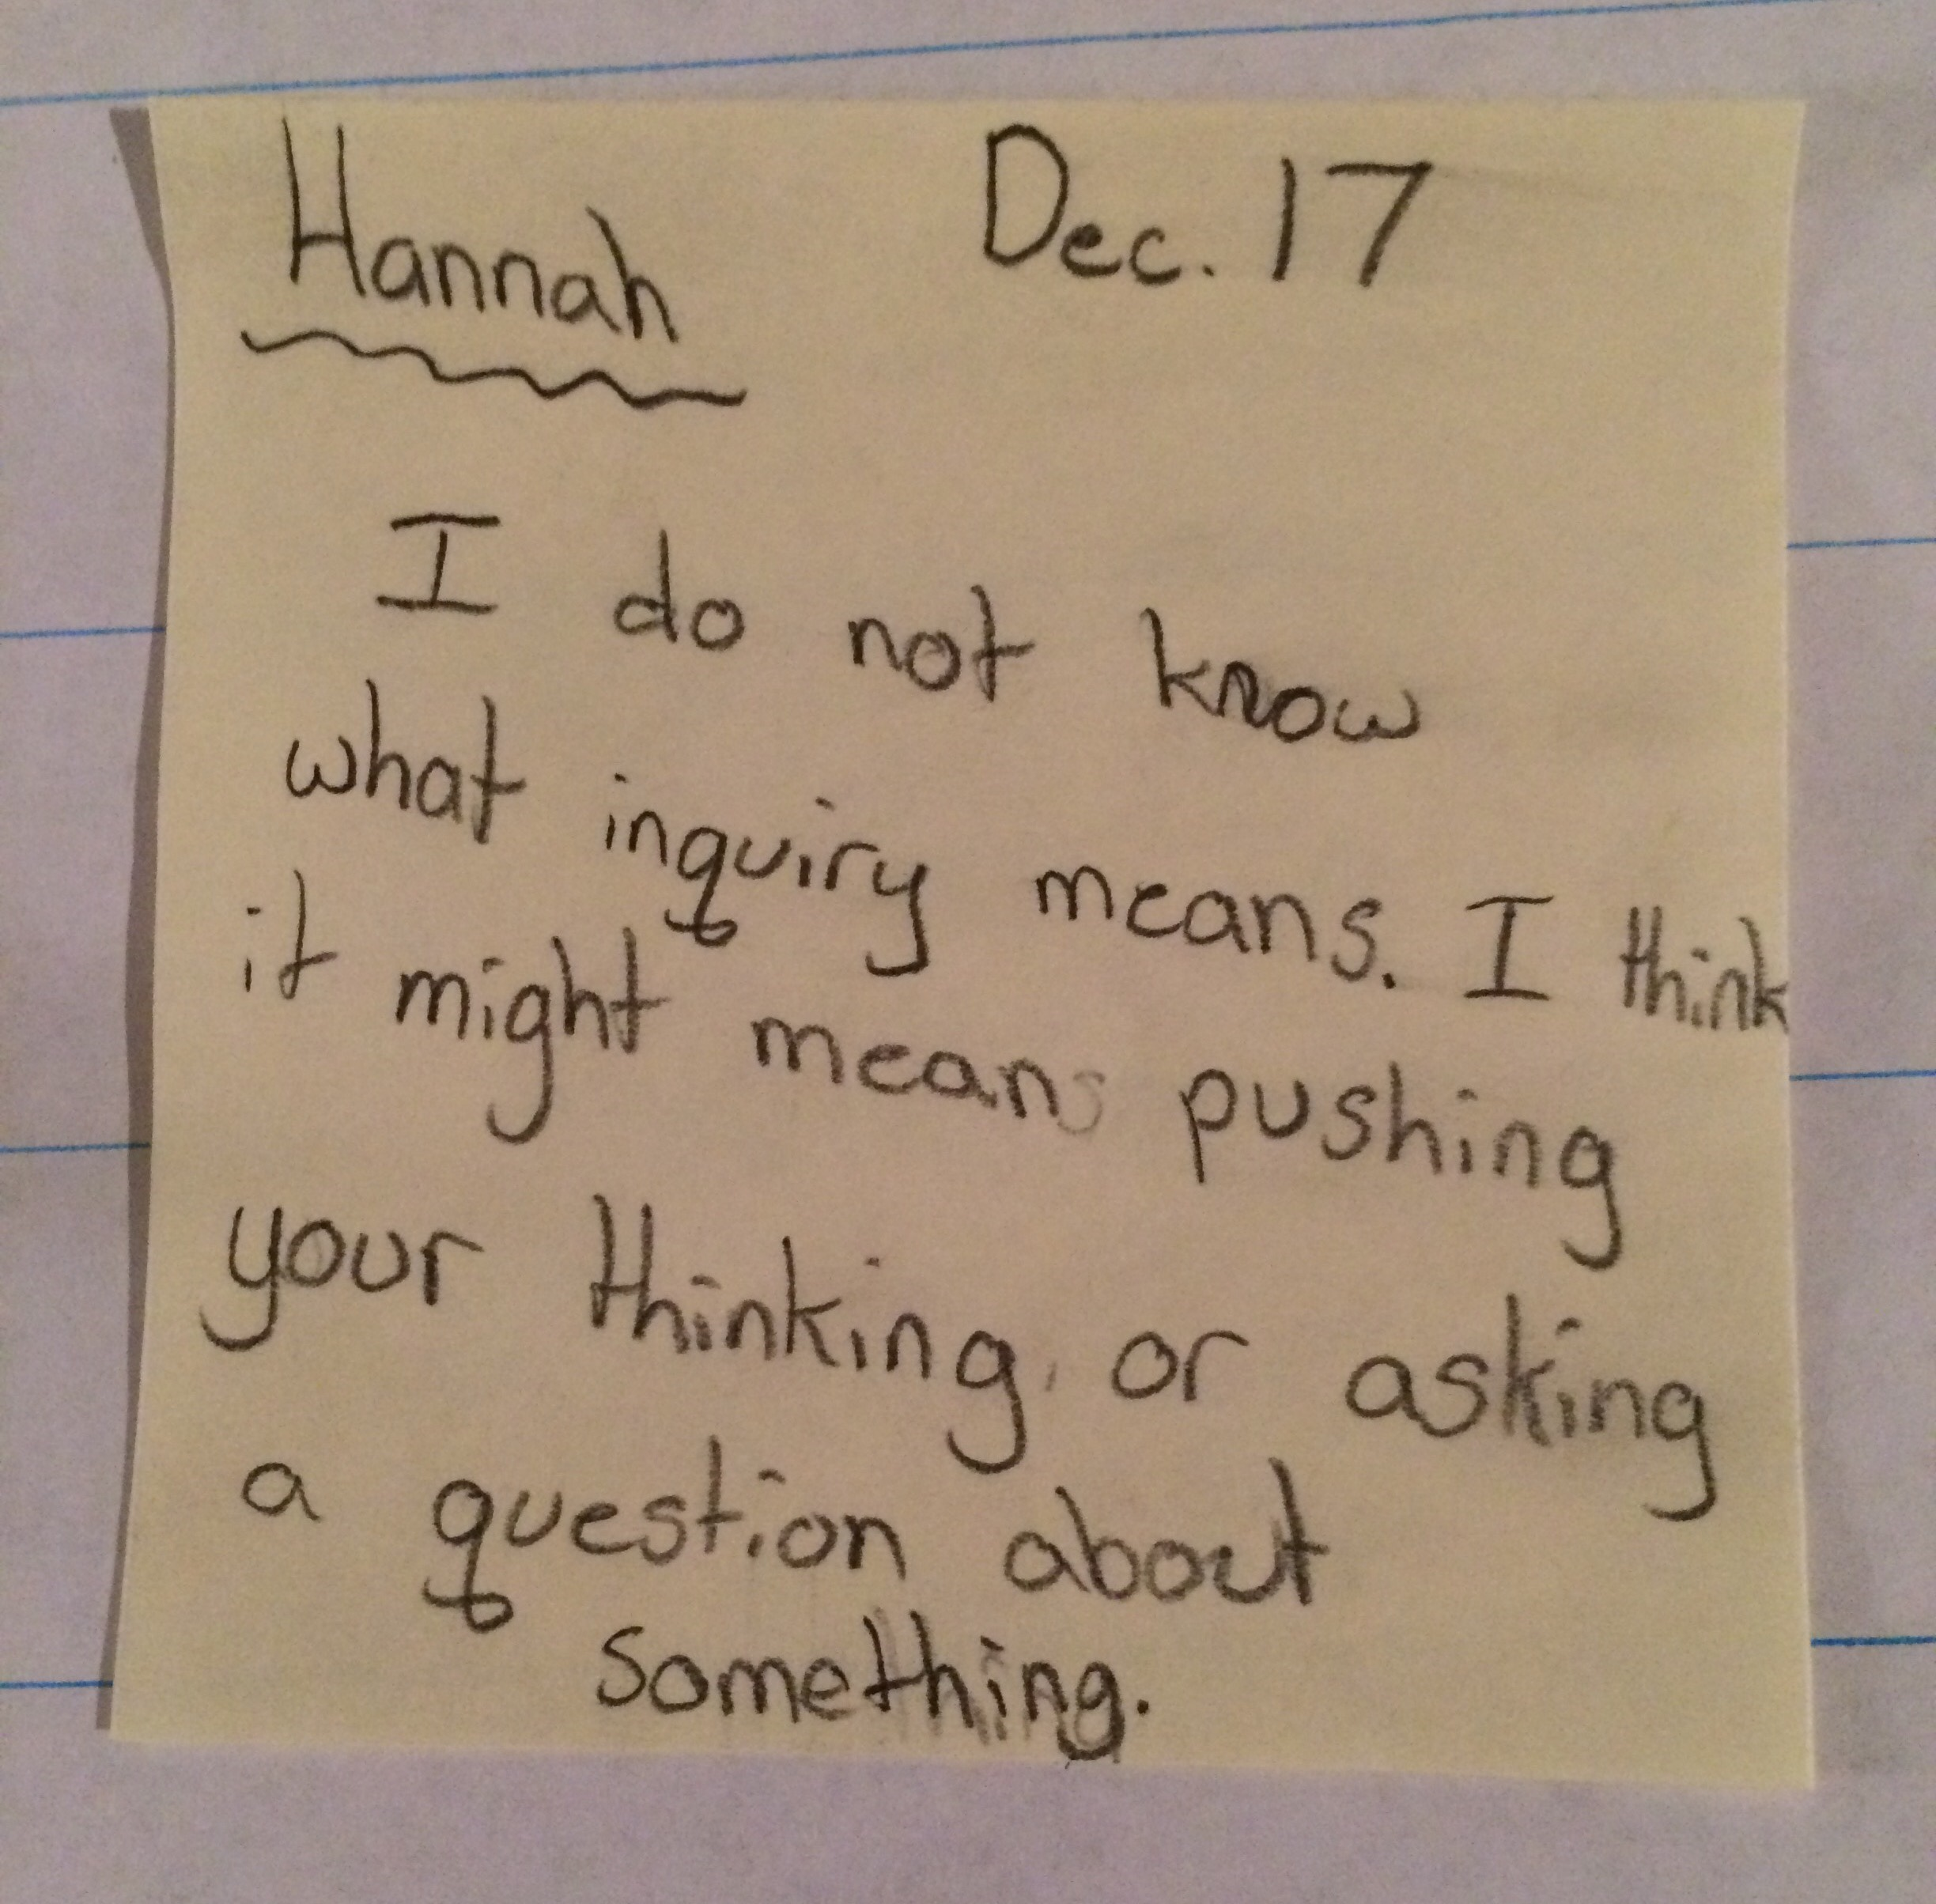 Hannah Dec. 17
I do not know
what inquiry means. I think
it might mean pushing
your thinking, or asking
a question about
something.